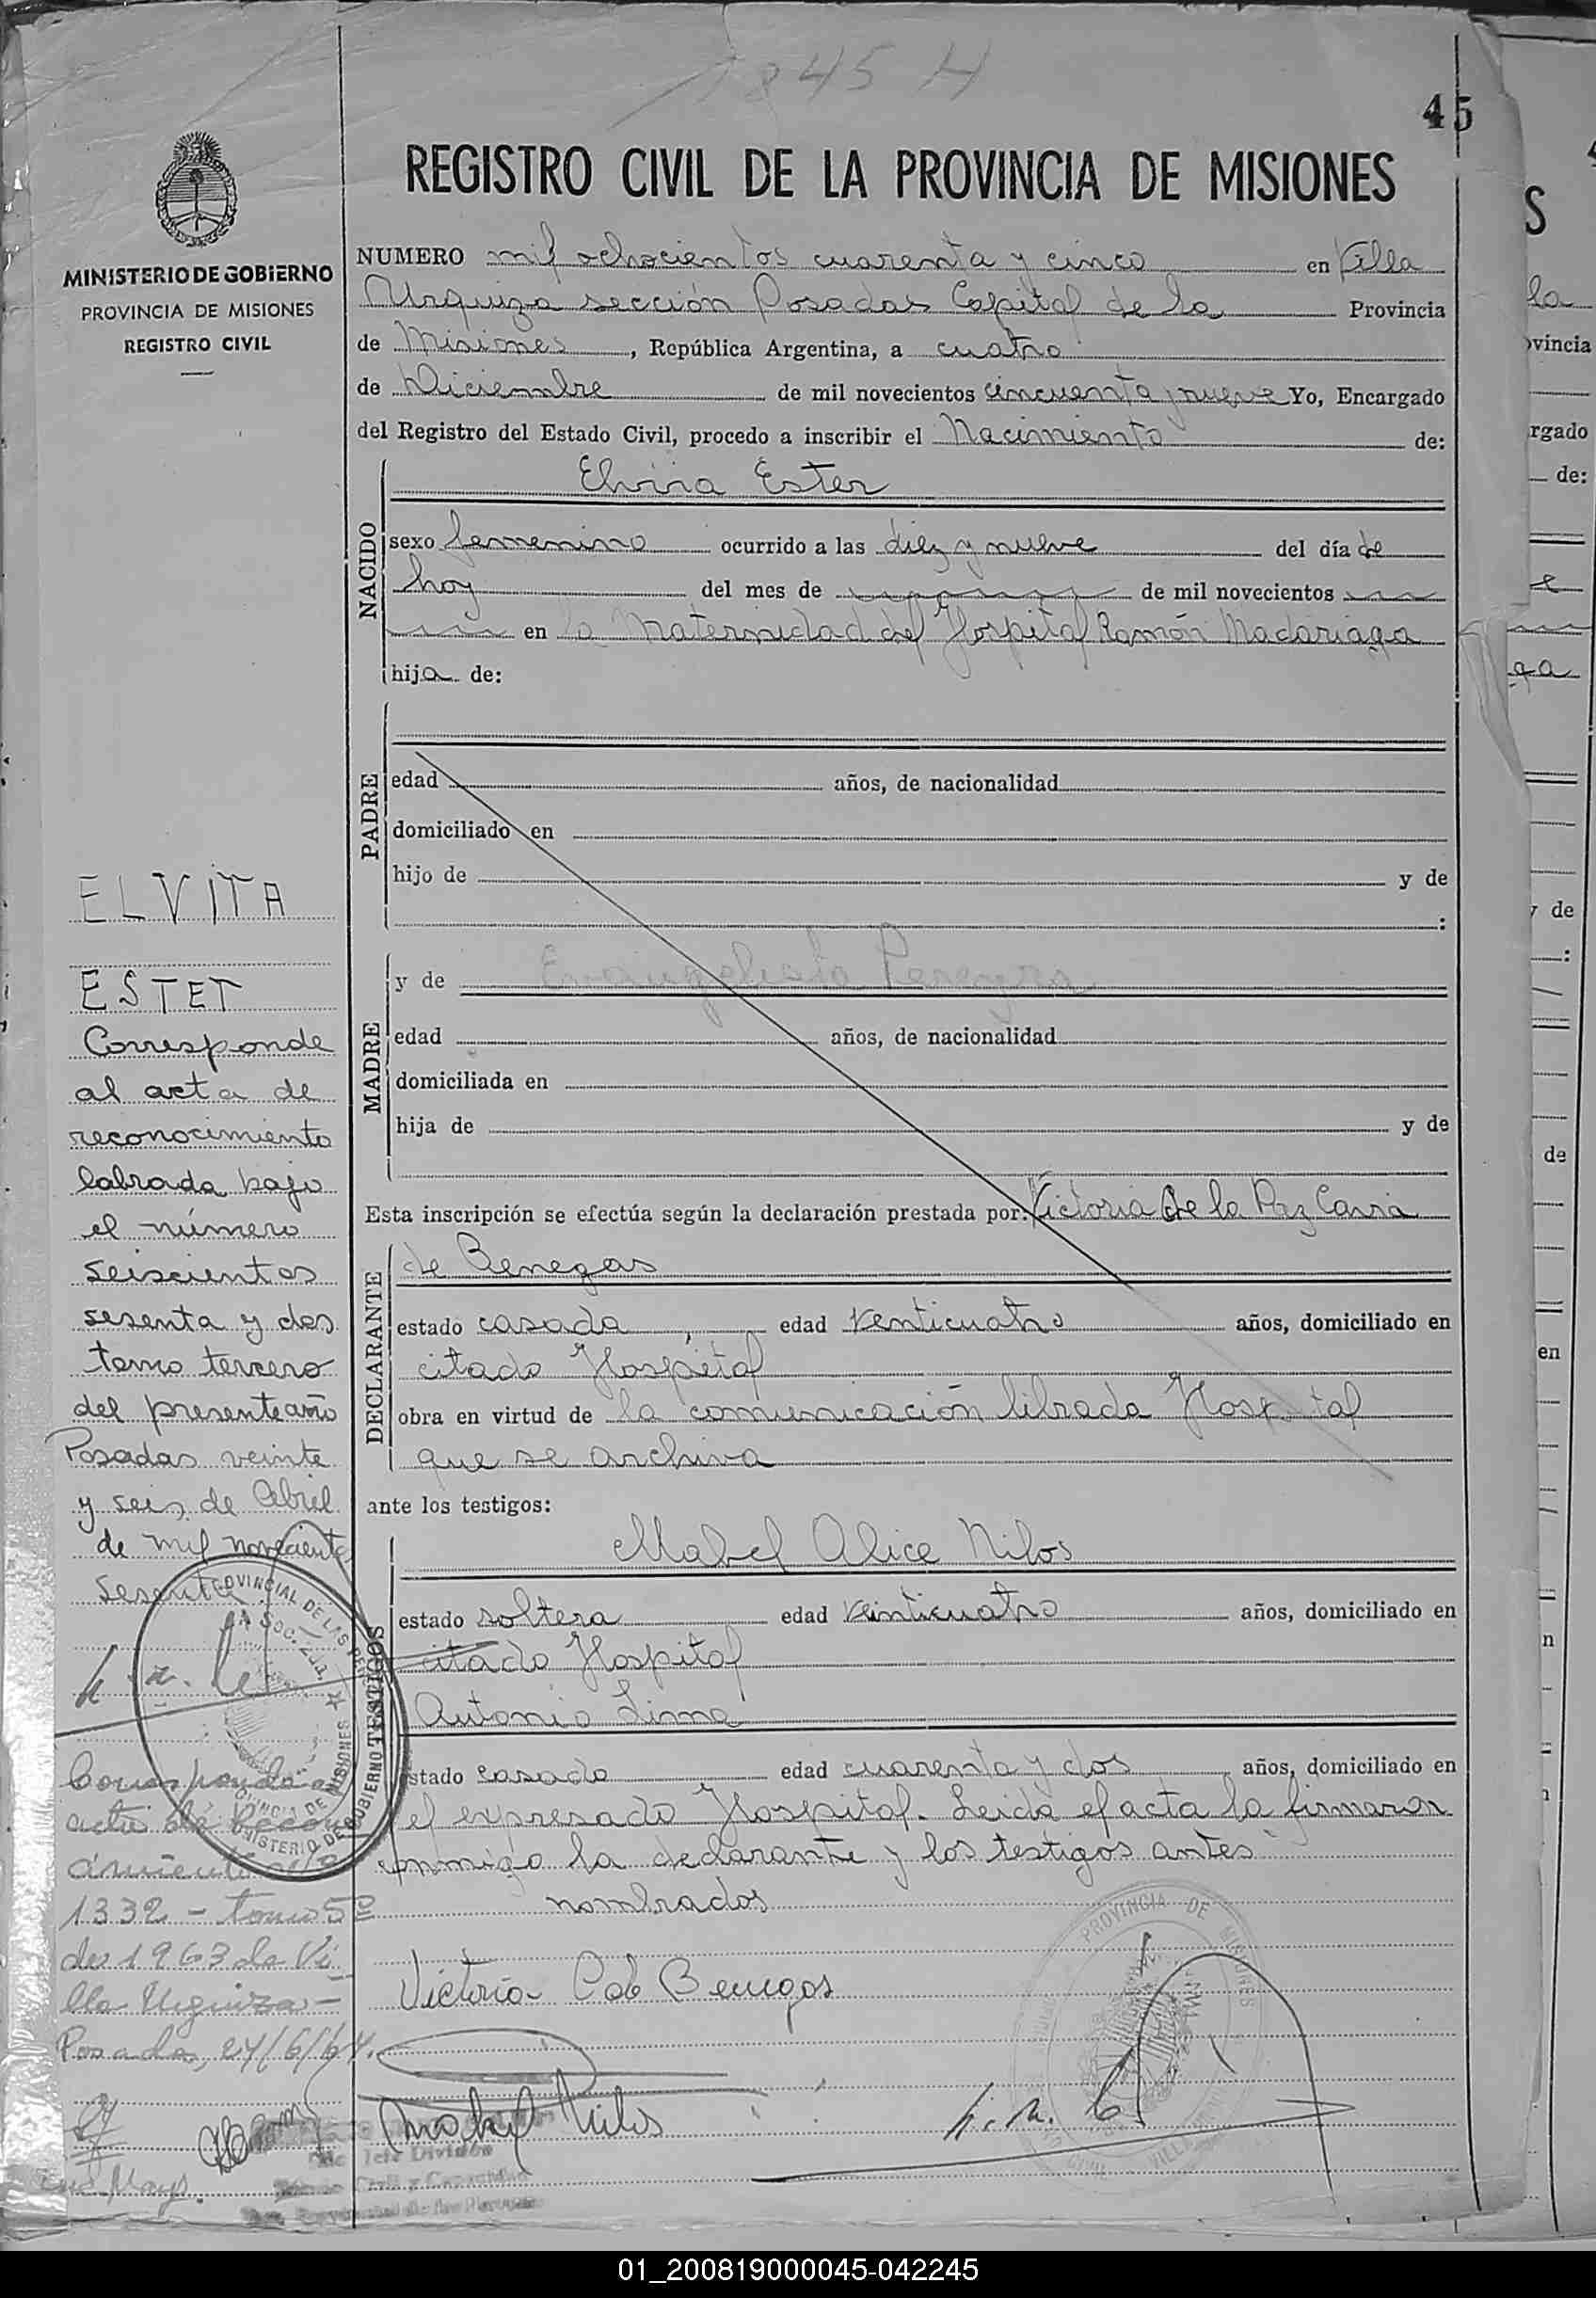 1845 H
45
REGISTRO CIVIL DE LA PROVINCIA DE MISIONES
MINISTERIO DE GOBIERNO
PROVINCIA DE MISIONES
REGISTRO CIVIL
NUMERO mil ochocientos cuarenta y cinco en Villa
Urquiza sección Posadas Capital de la Provincia
de Misiones, República Argentina, a cuatro
de Diciembre de mil novecientos cincuenta y nueve Yo, Encargado
del Registro del Estado Civil, procedo a inscribir el Nacimiento de:
NACIDO
Elvira Ester
sexo femenino ocurrido a las diez y nueve del día de
hoy del mes de de mil novecientos
en la Maternidad del Hospital Ramón Madariaga
hija de:
PADRE
edad años, de nacionalidad
domiciliado en
hijo de y de
:
MADRE
y de Evangelista Pereyra
edad años, de nacionalidad
domiciliada en
hija de y de
Esta inscripción se efectúa según la declaración prestada por: Victoria de la Paz
DECLARANTE
de Benegas
estado casada, edad venticuatro años, domiciliado en
citado Hospital
obra en virtud de la comunicación librada Hospital
que se archiva
ante los testigos:
TESTIGOS
Mabel Alice Nilos
estado soltera edad veinticuatro años, domiciliado en
citado Hospital
Antonio Lima
estado casado edad cuarenta y dos años, domiciliado en
el expresado Hospital. Leida el acta la firmaron
conmigo la declarante y los testigos antes
nombrados
Victoria C de Benegas
Mabel Nilos
ELVITA
ESTET
Corresponde
al acta de
reconocimiento
labrada bajo
el número
seiscientos
sesenta y dos
tomo tercero
del presente año
Posadas veinte
y seis de Abril
de mil novecientos
sesenta
Corresponde a
acta de recono
cimiento nº
1332 - tomo 5º
de 1963 de Vi
lla Urquiza -
Posadas, 24/6/64.
PROVINCIA DE MISIONES
01_200819000045-042245